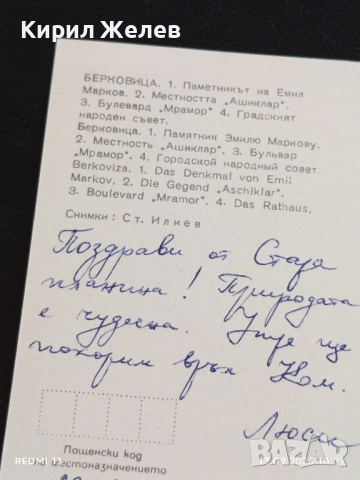 Кирил Желев
БЕРКОВИЦА. 1. Паметникът на Емил
Марков. 2. Местността „Ашиклар".
3. Булевард „Мрамор" 4. Градският
народен съвет.
Берковица. 1. Памятник Эмилю Маркову.
2. Местность „Ашиклар". 3. Бульвар
„Мрамор". 4. Городской народный совет.
Berkoviza. 1. Das Denkmal von Emil
Markov. 2. Die Gegend „Aschiklar".
3. Boulevard „Mramor". 4. Das Rathaus.
Снимки: Ст. Илиев
Поздрави от Стара
планина! Природата
е чудесна. Утре ще
покорим връх Ком.
Люси
Пощенски код
местоназначението
REDMI 13
bazar